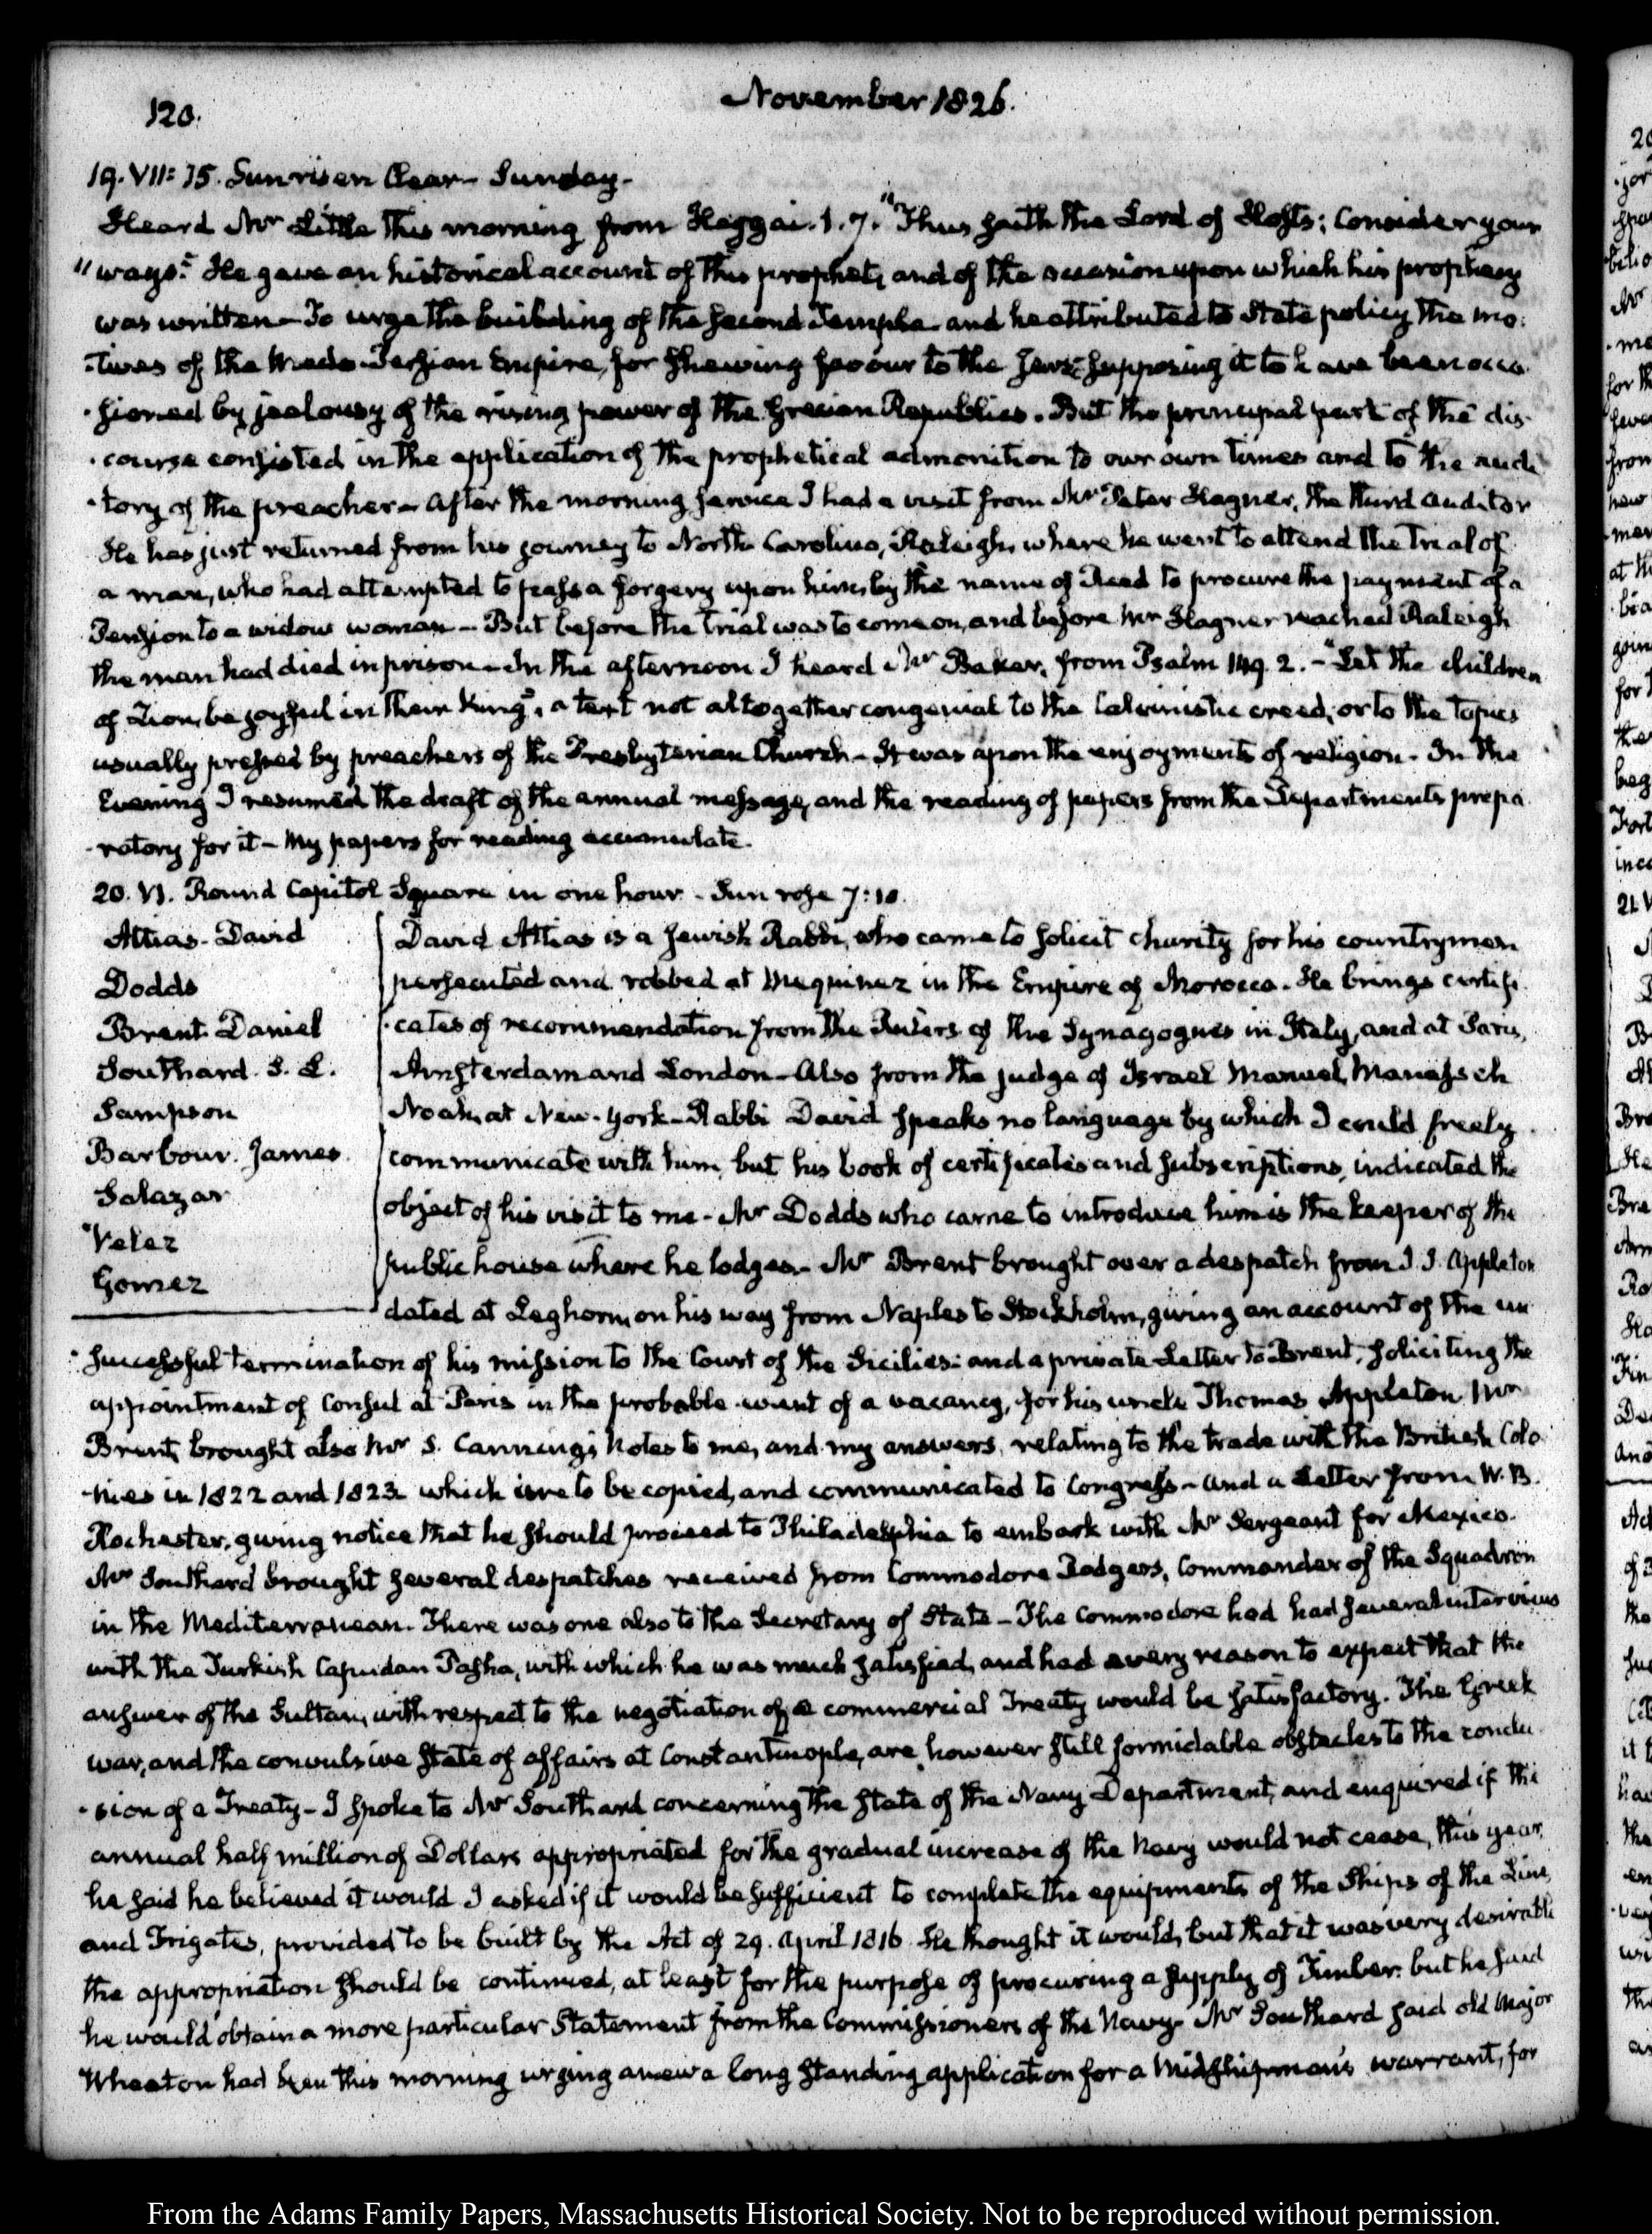 120.
November 1826.
19. VII: 15. Sun risen Clear - Sunday -
Heard Mr Little this morning from Haggai. 1. 7. "Thus saith the Lord of Hosts; Consider your
"ways." He gave an historical account of this prophet, and of the occasion upon which his prophecy
was written - To urge the building of the second Temple - and he attributed to State policy the mo:
:tives of the Medo-Persian Empire, for shewing favour to the Jews; supposing it to have been occa
-sioned by jealousy of the rising power of the Grecian Republics. But the principal part of the dis-
-course consisted in the application of the prophetical admonition to our own times and to the audi
-tory of the preacher - After the morning service I had a visit from Mr Peter Hagner, the third Auditor
He has just returned from his journey to North Carolina, Raleigh, where he went to attend the Trial of
a man, who had attempted to pass a forgery upon him, by the name of Reed to procure the payment of a
Pension to a widow woman - But before the trial was to come on, and before Mr Hagner reached Raleigh
the man had died in prison - In the afternoon I heard Mr Baker, from Psalm 149. 2. - "Let the children
of Zion, be joyful in their King", a text not altogether congenial to the Calvinistic creed, or to the topics
usually pressed by preachers of the Presbyterian Church - It was upon the enjoyments of religion - In the
Evening I resumed the draft of the annual message, and the reading of papers from the Departments prepa
-ratory for it - My papers for reading accumulate.
20. VI. Round Capitol Square in one hour - Sun rose 7:10.
Attias - David
Dodds
Brent. Daniel
Southard. S. L.
Sampson
Barbour. James
Salazar
Velez
Gomez
David Attias is a Jewish Rabbi, who came to solicit charity for his countrymen
persecuted and robbed at Mequinez in the Empire of Morocco. He brings certifi
-cates of recommendation from the Rulers of the Synagogues in Italy, and at Paris,
Amsterdam and London - Also from the judge of Israel Manuel Manasseh
Noah, at New-York - Rabbi David speaks no language by which I could freely
communicate with him, but his book of certificates and subscriptions, indicated the
object of his visit to me - Mr Dodds who came to introduce him is the keeper of the
public house where he lodges - Mr Brent brought over a despatch from J. J. Appleton
dated at Leghorn, on his way from Naples to Stockholm, giving an account of the un
-successful termination of his mission to the Court of the Sicilies: and a private Letter to Brent, soliciting the
appointment of Consul at Paris in the probable event of a vacancy, for his uncle Thomas Appleton Mr
Brent, brought also Mr S. Canning's Notes to me, and my answers, relating to the trade with the British Colo
-nies in 1822 and 1823 which are to be copied, and communicated to Congress - and a Letter from W. B.
Rochester, giving notice that he should proceed to Philadelphia to embark with Mr Sergeant for Mexico.
Mr Southard brought several despatches received from Commodore Rodgers, Commander of the Squadron
in the Mediterranean. There was one also to the Secretary of State - The Commodore had had several interviews
with the Turkish Capudan Pasha, with which he was much satisfied, and had every reason to expect that the
answer of the Sultan, with respect to the negotiation of a commercial Treaty would be satisfactory. The Greek
war, and the convulsive state of affairs at Constantinople, are however still formidable obstacles to the conclu
-sion of a Treaty - I spoke to Mr Southard concerning the state of the Navy Department, and enquired if the
annual half million of Dollars appropriated for the gradual increase of the Navy would not cease, this year,
he said he believed it would I asked if it would be sufficient to complete the equipments of the Ships of the Line,
and Frigates, provided to be built by the Act of 29. April 1816. He thought it would, but that it was very desirable
the appropriation should be continued, at least for the purpose of procuring a supply of Timber: but he said
he would obtain a more particular Statement from the Commissioners of the Navy - Mr Southard said old Major
Wheaton had been this morning urging anew a long standing application for a Midshipman's warrant, for
From the Adams Family Papers, Massachusetts Historical Society. Not to be reproduced without permission.